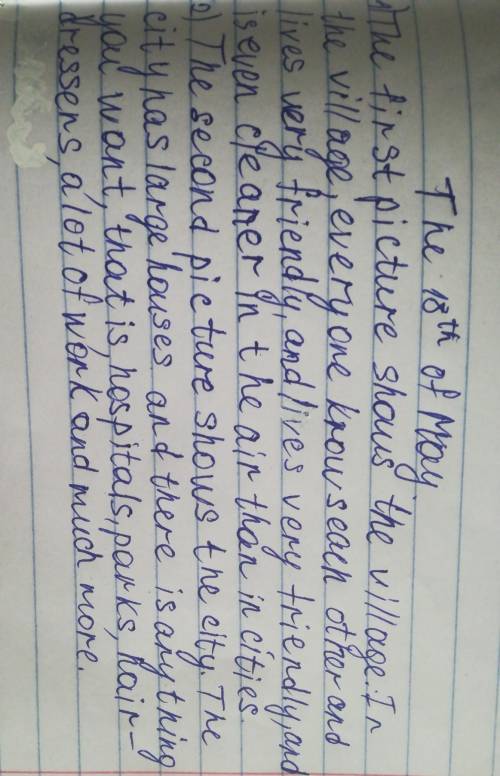 The 18th of May
1) The first picture shows the village. In
the village, everyone knows each other and
lives very friendly, and lives very friendly, and
is even cleaner in the air than in cities.
2) The second picture shows the city. The
city has large houses and there is anything
you want, that is hospitals, parks, hair-
dressers, a lot of work and much more.